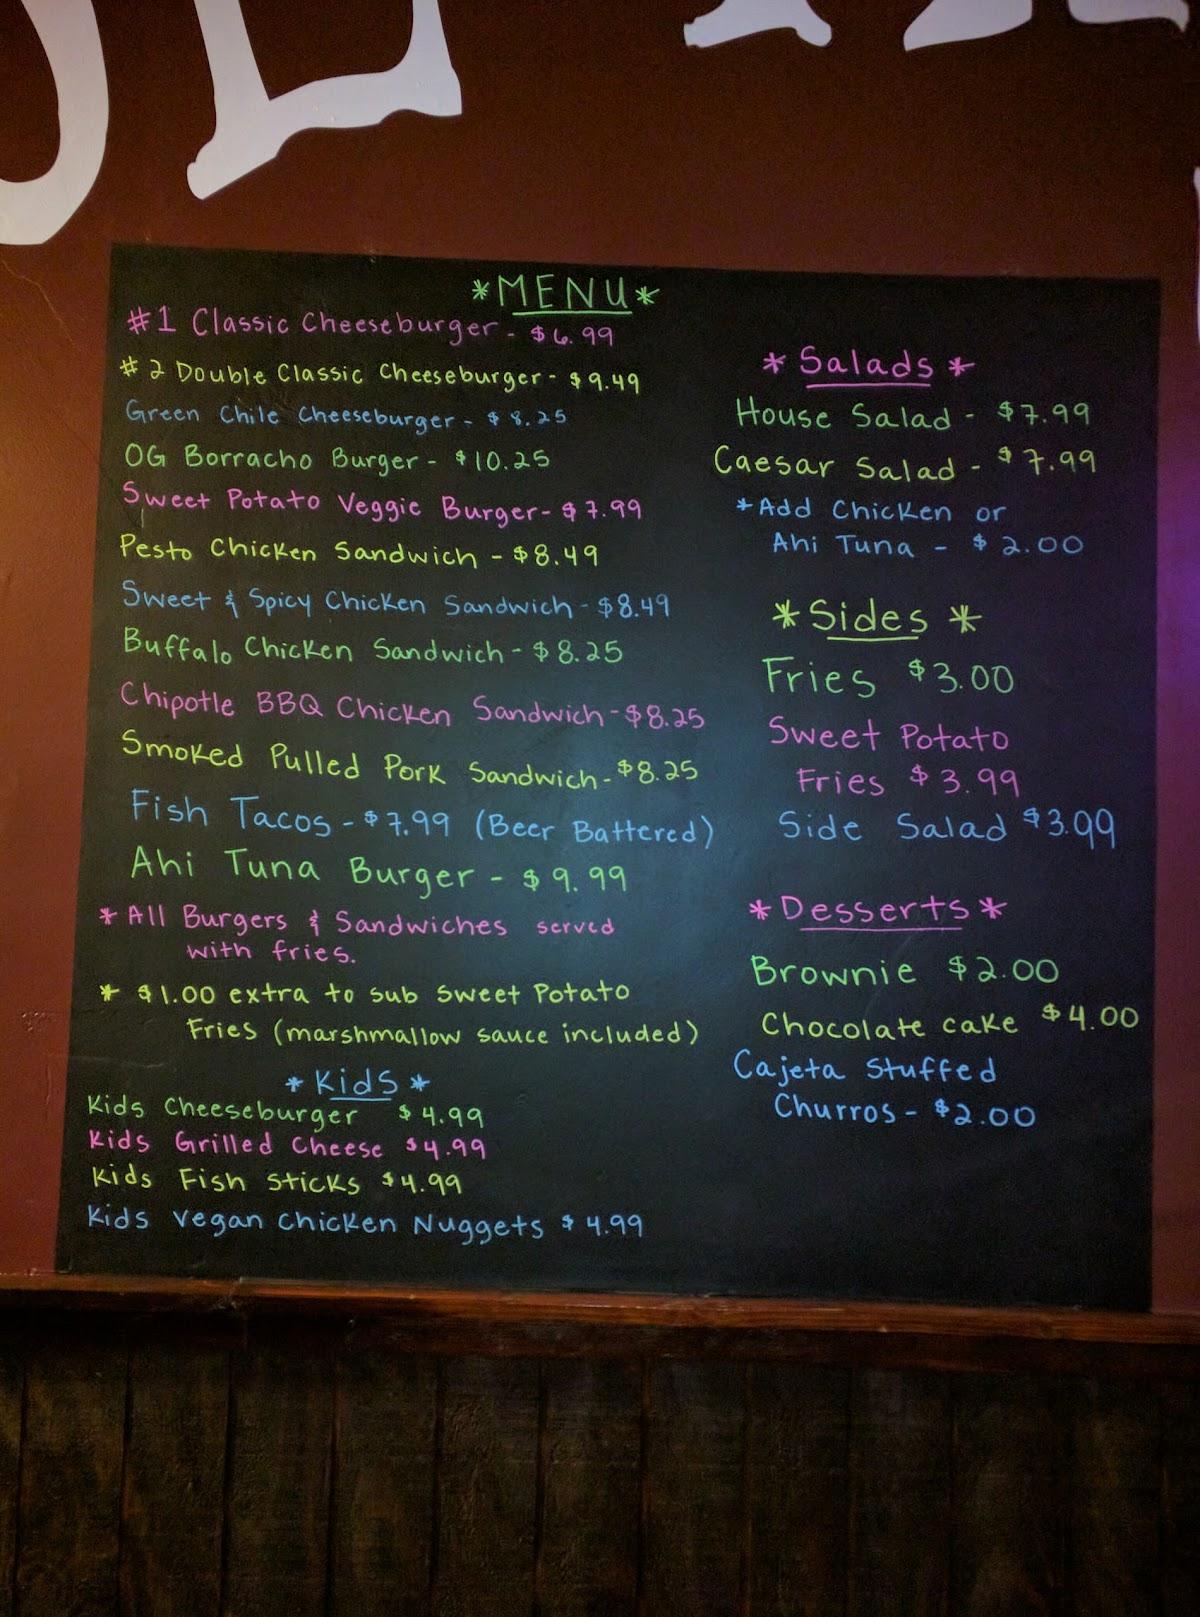 *MENU*
#1 Classic Cheeseburger - $6.99
#2 Double Classic Cheeseburger - $9.49
Green Chile Cheeseburger - $8.25
OG Borracho Burger - $10.25
Sweet Potato Veggie Burger - $7.99
Pesto Chicken Sandwich - $8.49
Sweet & Spicy Chicken Sandwich - $8.49
Buffalo Chicken Sandwich - $8.25
Chipotle BBQ Chicken Sandwich - $8.25
Smoked Pulled Pork Sandwich - $8.25
Fish Tacos - $7.99 (Beer Battered)
Ahi Tuna Burger - $9.99
* All Burgers & Sandwiches served
with fries.
* $1.00 extra to sub Sweet Potato
Fries (marshmallow sauce included)
*Kids*
Kids Cheeseburger $4.99
Kids Grilled Cheese $4.99
Kids Fish Sticks $4.99
Kids Vegan Chicken Nuggets $4.99
*Salads*
House Salad - $7.99
Caesar Salad - $7.99
*Add Chicken or
Ahi Tuna - $2.00
*Sides*
Fries $3.00
Sweet Potato
Fries $3.99
Side Salad $3.99
*Desserts*
Brownie $2.00
Chocolate cake $4.00
Cajeta Stuffed
Churros - $2.00